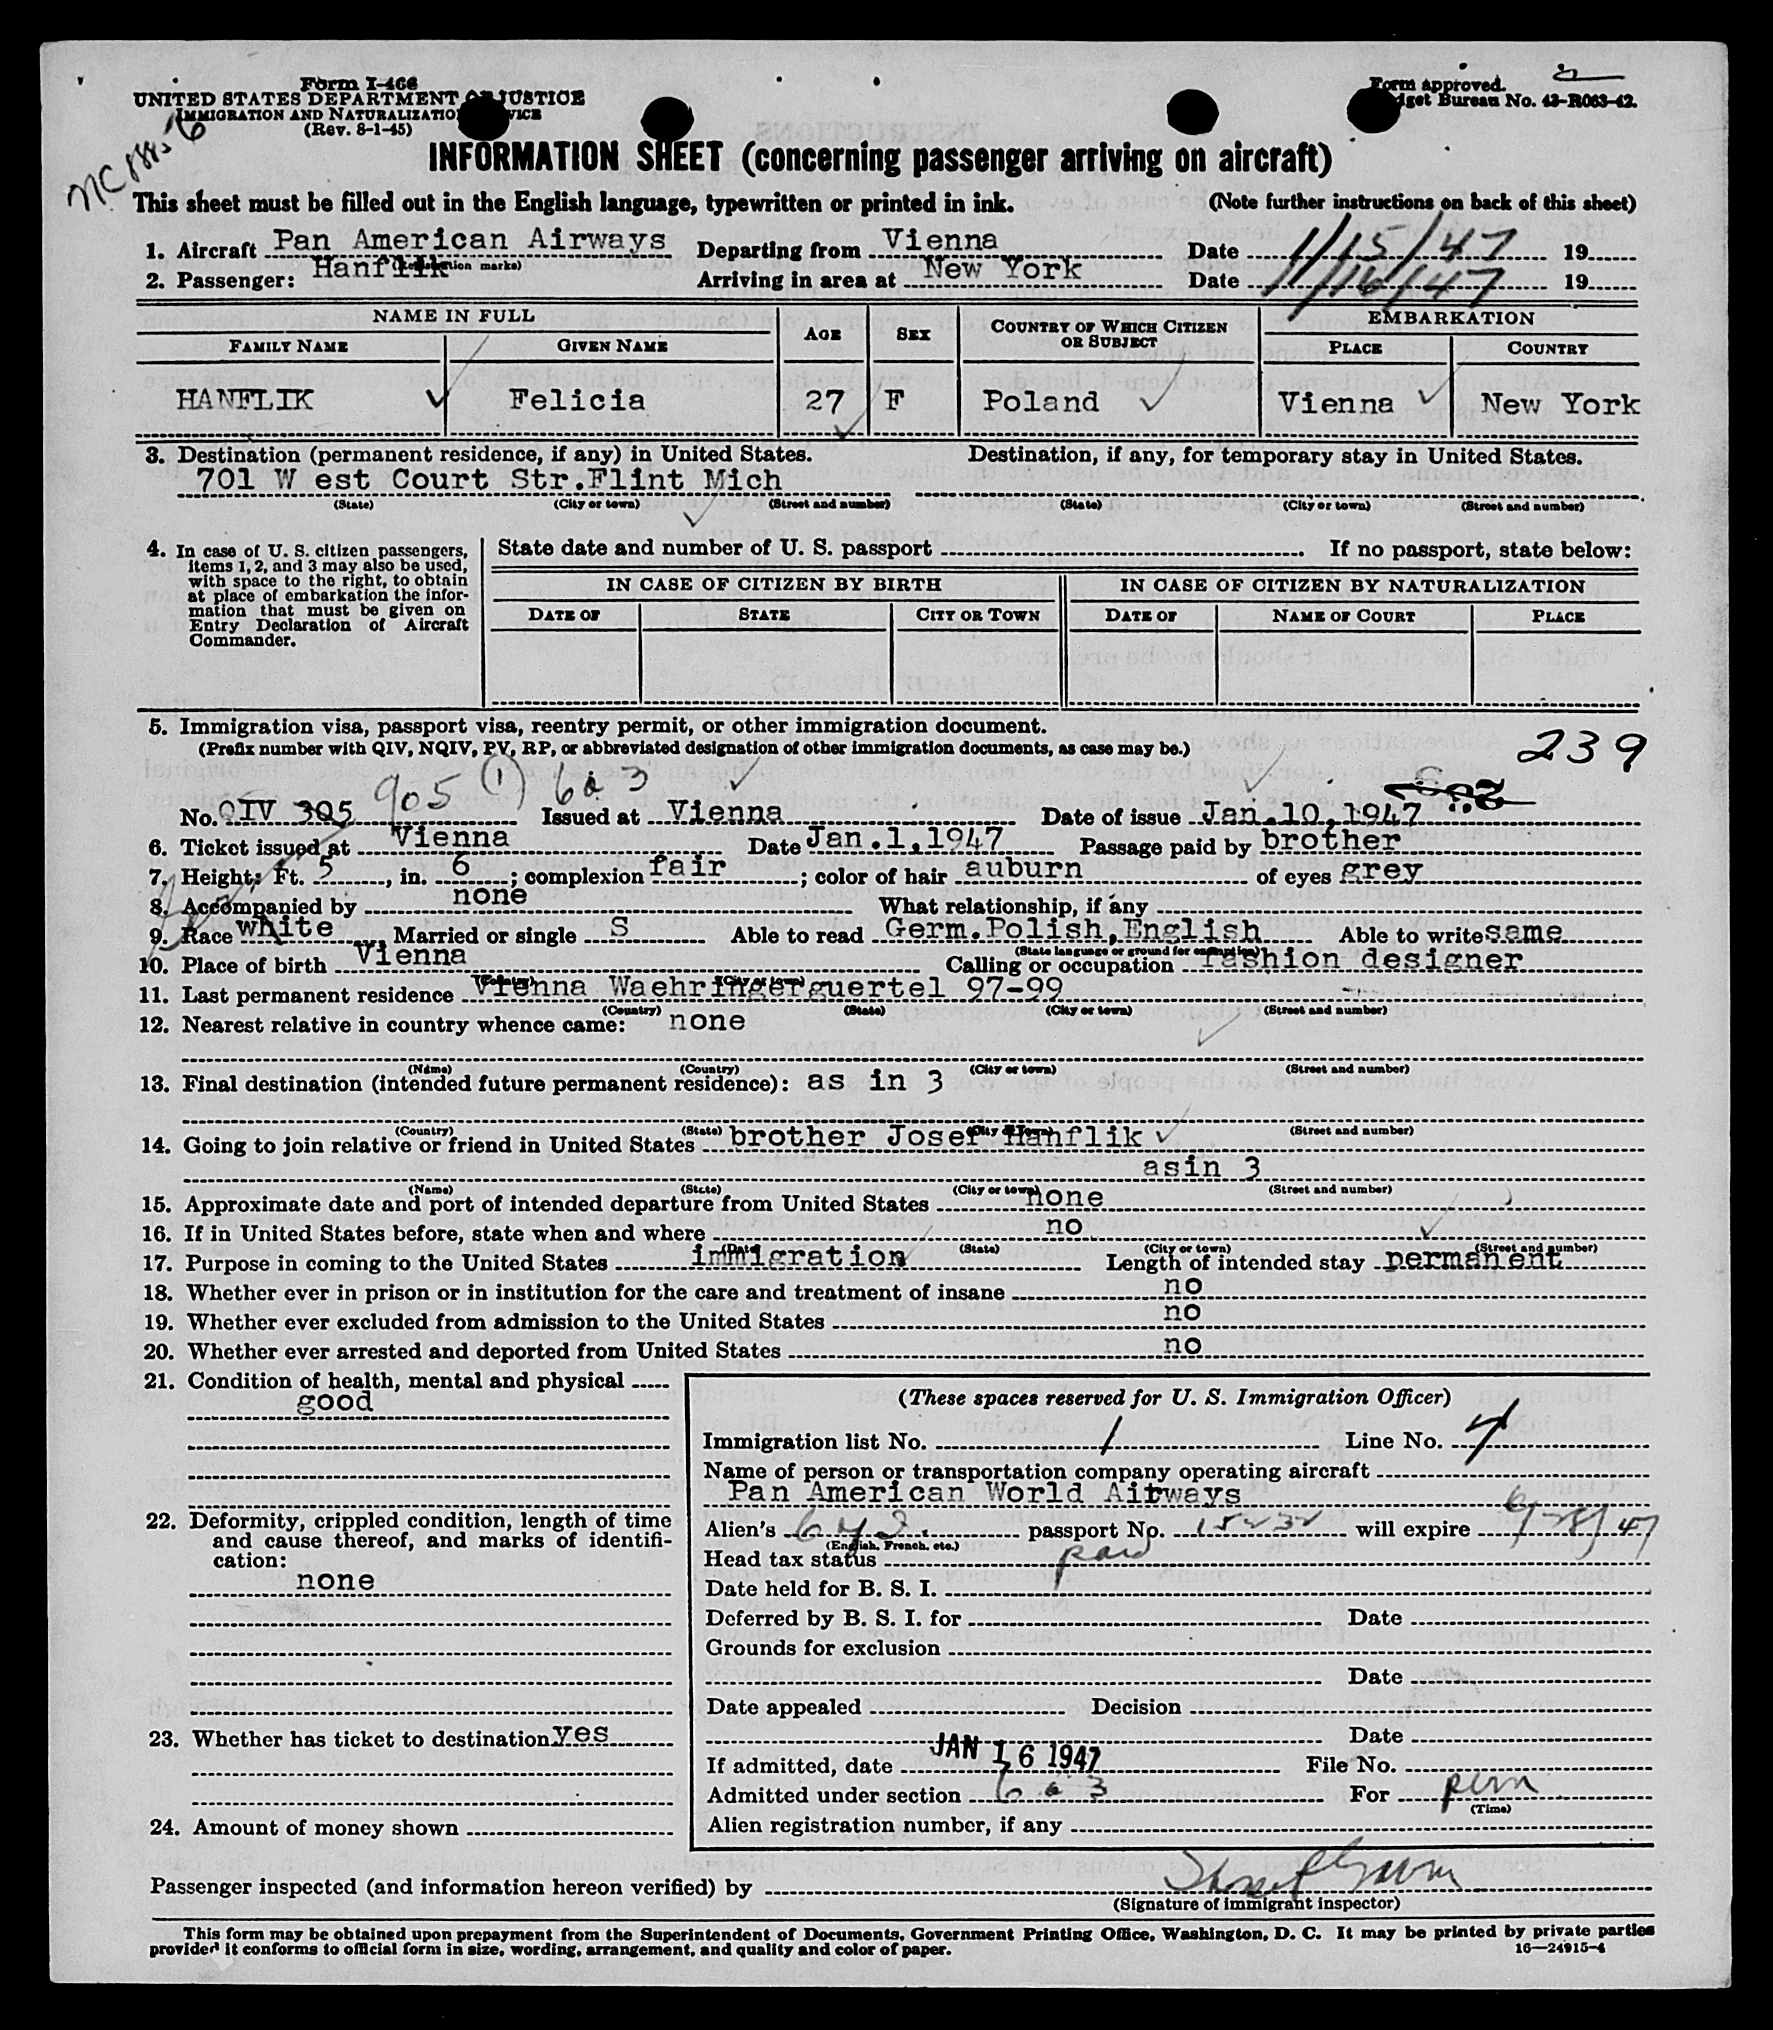 Form I-466
UNITED STATES DEPARTMENT OF JUSTICE
IMMIGRATION AND NATURALIZATION SERVICE
(Rev. 8-1-45)
Form approved.
Budget Bureau No. 43-R063-42.
INFORMATION SHEET (concerning passenger arriving on aircraft)
This sheet must be filled out in the English language, typewritten or printed in ink. (Note further instructions on back of this sheet)
1. Aircraft Pan American Airways Departing from Vienna Date 1/15/47 19
(Registration marks)
2. Passenger: Hanflik Arriving in area at New York Date 1/16/47 19
NAME IN FULL AGE SEX COUNTRY OF WHICH CITIZEN OR SUBJECT EMBARKATION
FAMILY NAME GIVEN NAME PLACE COUNTRY
HANFLIK Felicia 27 F Poland Vienna New York
3. Destination (permanent residence, if any) in United States. Destination, if any, for temporary stay in United States.
701 W est Court Str.Flint Mich
(State) (City or town) (Street and number) (State) (City or town) (Street and number)
4. In case of U. S. citizen passengers, items 1, 2, and 3 may also be used, with space to the right, to obtain at place of embarkation the information that must be given on Entry Declaration of Aircraft Commander.
State date and number of U. S. passport If no passport, state below:
IN CASE OF CITIZEN BY BIRTH IN CASE OF CITIZEN BY NATURALIZATION
DATE OF STATE CITY OR TOWN DATE OF NAME OF COURT PLACE
5. Immigration visa, passport visa, reentry permit, or other immigration document.
(Prefix number with QIV, NQIV, PV, RP, or abbreviated designation of other immigration documents, as case may be.) 239
905 (1) 6a3
No. QIV 305 Issued at Vienna Date of issue Jan.10.1947
6. Ticket issued at Vienna Date Jan.1.1947 Passage paid by brother
7. Height: Ft. 5, in. 6; complexion fair; color of hair auburn of eyes grey
8. Accompanied by none What relationship, if any
9. Race white, Married or single S Able to read Germ.Polish,English Able to write same
(State language or ground for exemption)
10. Place of birth Vienna Calling or occupation fashion designer
(Country) (City or town)
11. Last permanent residence Vienna Waehringerguertel 97-99
(Country) (State) (City or town) (Street and number)
12. Nearest relative in country whence came: none
(Name) (Country) (City or town) (Street and number)
13. Final destination (intended future permanent residence): as in 3
(Country) (State) (City or town) (Street and number)
14. Going to join relative or friend in United States brother Josef Hanflik
asin 3
(Name) (State) (City or town) (Street and number)
15. Approximate date and port of intended departure from United States none
16. If in United States before, state when and where no
(Date) (State) (City or town) (Street and number)
17. Purpose in coming to the United States immigration Length of intended stay permanent
18. Whether ever in prison or in institution for the care and treatment of insane no
19. Whether ever excluded from admission to the United States no
20. Whether ever arrested and deported from United States no
21. Condition of health, mental and physical
good
22. Deformity, crippled condition, length of time and cause thereof, and marks of identification:
none
23. Whether has ticket to destination yes
24. Amount of money shown
(These spaces reserved for U. S. Immigration Officer)
Immigration list No. 1 Line No. 4
Name of person or transportation company operating aircraft
Pan American World Airways
Alien's passport No. 15232 will expire 6/28/47
(English, French, etc.)
Head tax status paid
Date held for B. S. I.
Deferred by B. S. I. for Date
Grounds for exclusion
Date
Date appealed Decision
Date
If admitted, date JAN 16 1947 File No.
Admitted under section 6a3 For perm
(Time)
Alien registration number, if any
Passenger inspected (and information hereon verified) by
(Signature of immigrant inspector)
This form may be obtained upon prepayment from the Superintendent of Documents, Government Printing Office, Washington, D. C. It may be printed by private parties
provided it conforms to official form in size, wording, arrangement, and quality and color of paper. 16—24915-4